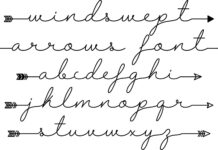 windswept
arrows font
abcdefghi
jklmnopqr
stuvwxyz